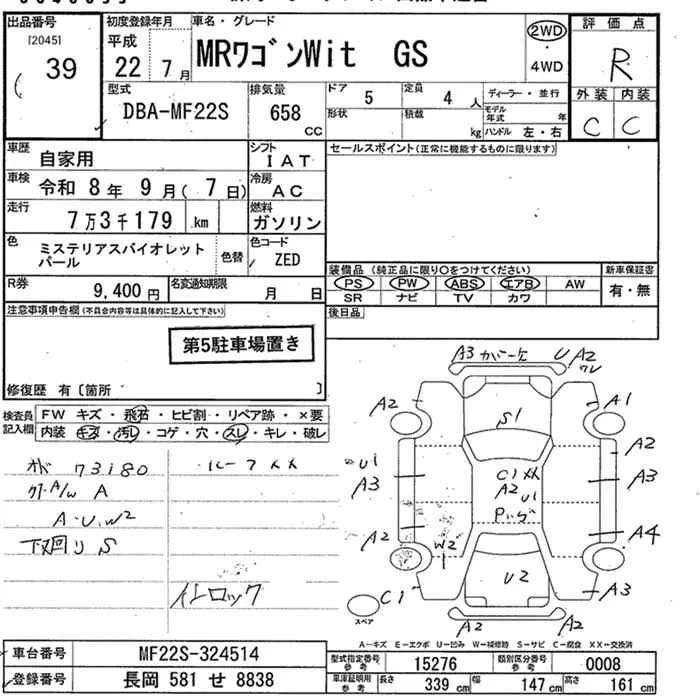 出品番号
[2045]
39
初度登録年月
平成
22年7月
車名・グレード
MRワゴンWit GS
2WD
・
4WD
評価点
R
外装 内装
C C
型式
DBA-MF22S
排気量
658 CC
ドア 5
定員 4人
形状
積載 kg
ディーラー・並行
モデル年式 年
ハンドル 左・右
車歴 自家用
シフト IAT
車検 令和 8年 9月( 7日)
冷房 AC
走行 7万3千179 km
燃料 ガソリン
色 ミステリアスバイオレット
パール
色替
色コード ZED
R券 9,400円
名変通知期限 月 日
セールスポイント(正常に機能するものに限ります)
装備品 (純正品に限り○をつけてください)
PS PW ABS エアB AW
SR ナビ TV カワ
新車保証書
有・無
後日品
注意事項申告欄(不具合内容等は具体的に記入して下さい)
第5駐車場置き
修復歴 有〔箇所 〕
検査員記入欄
FW キズ・飛石・ヒビ割・リペア跡・×要
内装 キズ・汚レ・コゲ・穴・スレ・キレ・破レ
73180
A/W A
A・U・W2
下回り S
ルーフXX
インロック
A3 カバー欠 U A2
ワレ
A2
A1
S1
U1
A3
A2
A3
C1 XX
A2 U1
A2
W2
A4
U2
C1
A3
A2
A2
スペア
A-キズ E-エクボ U-凹み W-補修跡 S-サビ C-腐食 XX-交換済
車台番号 MF22S-324514
登録番号 長岡 581 せ 8838
型式指定番号 参考 15276
類別区分番号 参考 0008
車庫証明用 参考
長さ 339 cm
幅 147 cm
高さ 161 cm